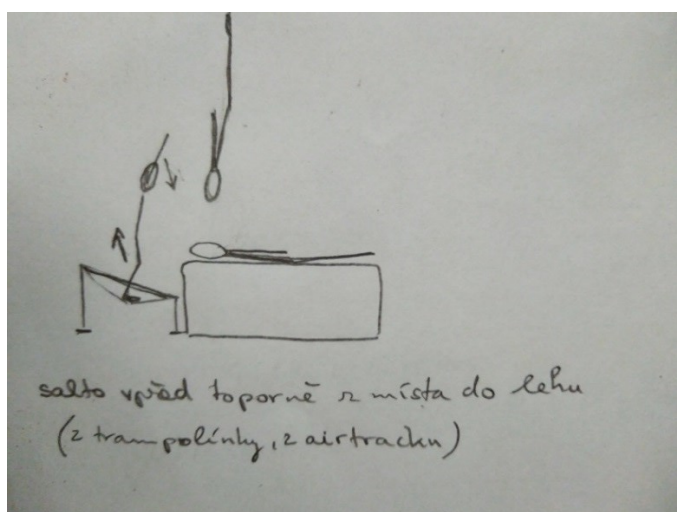 salto vpřed toporně z místa do lehu
(z trampolínky, z airtracku)